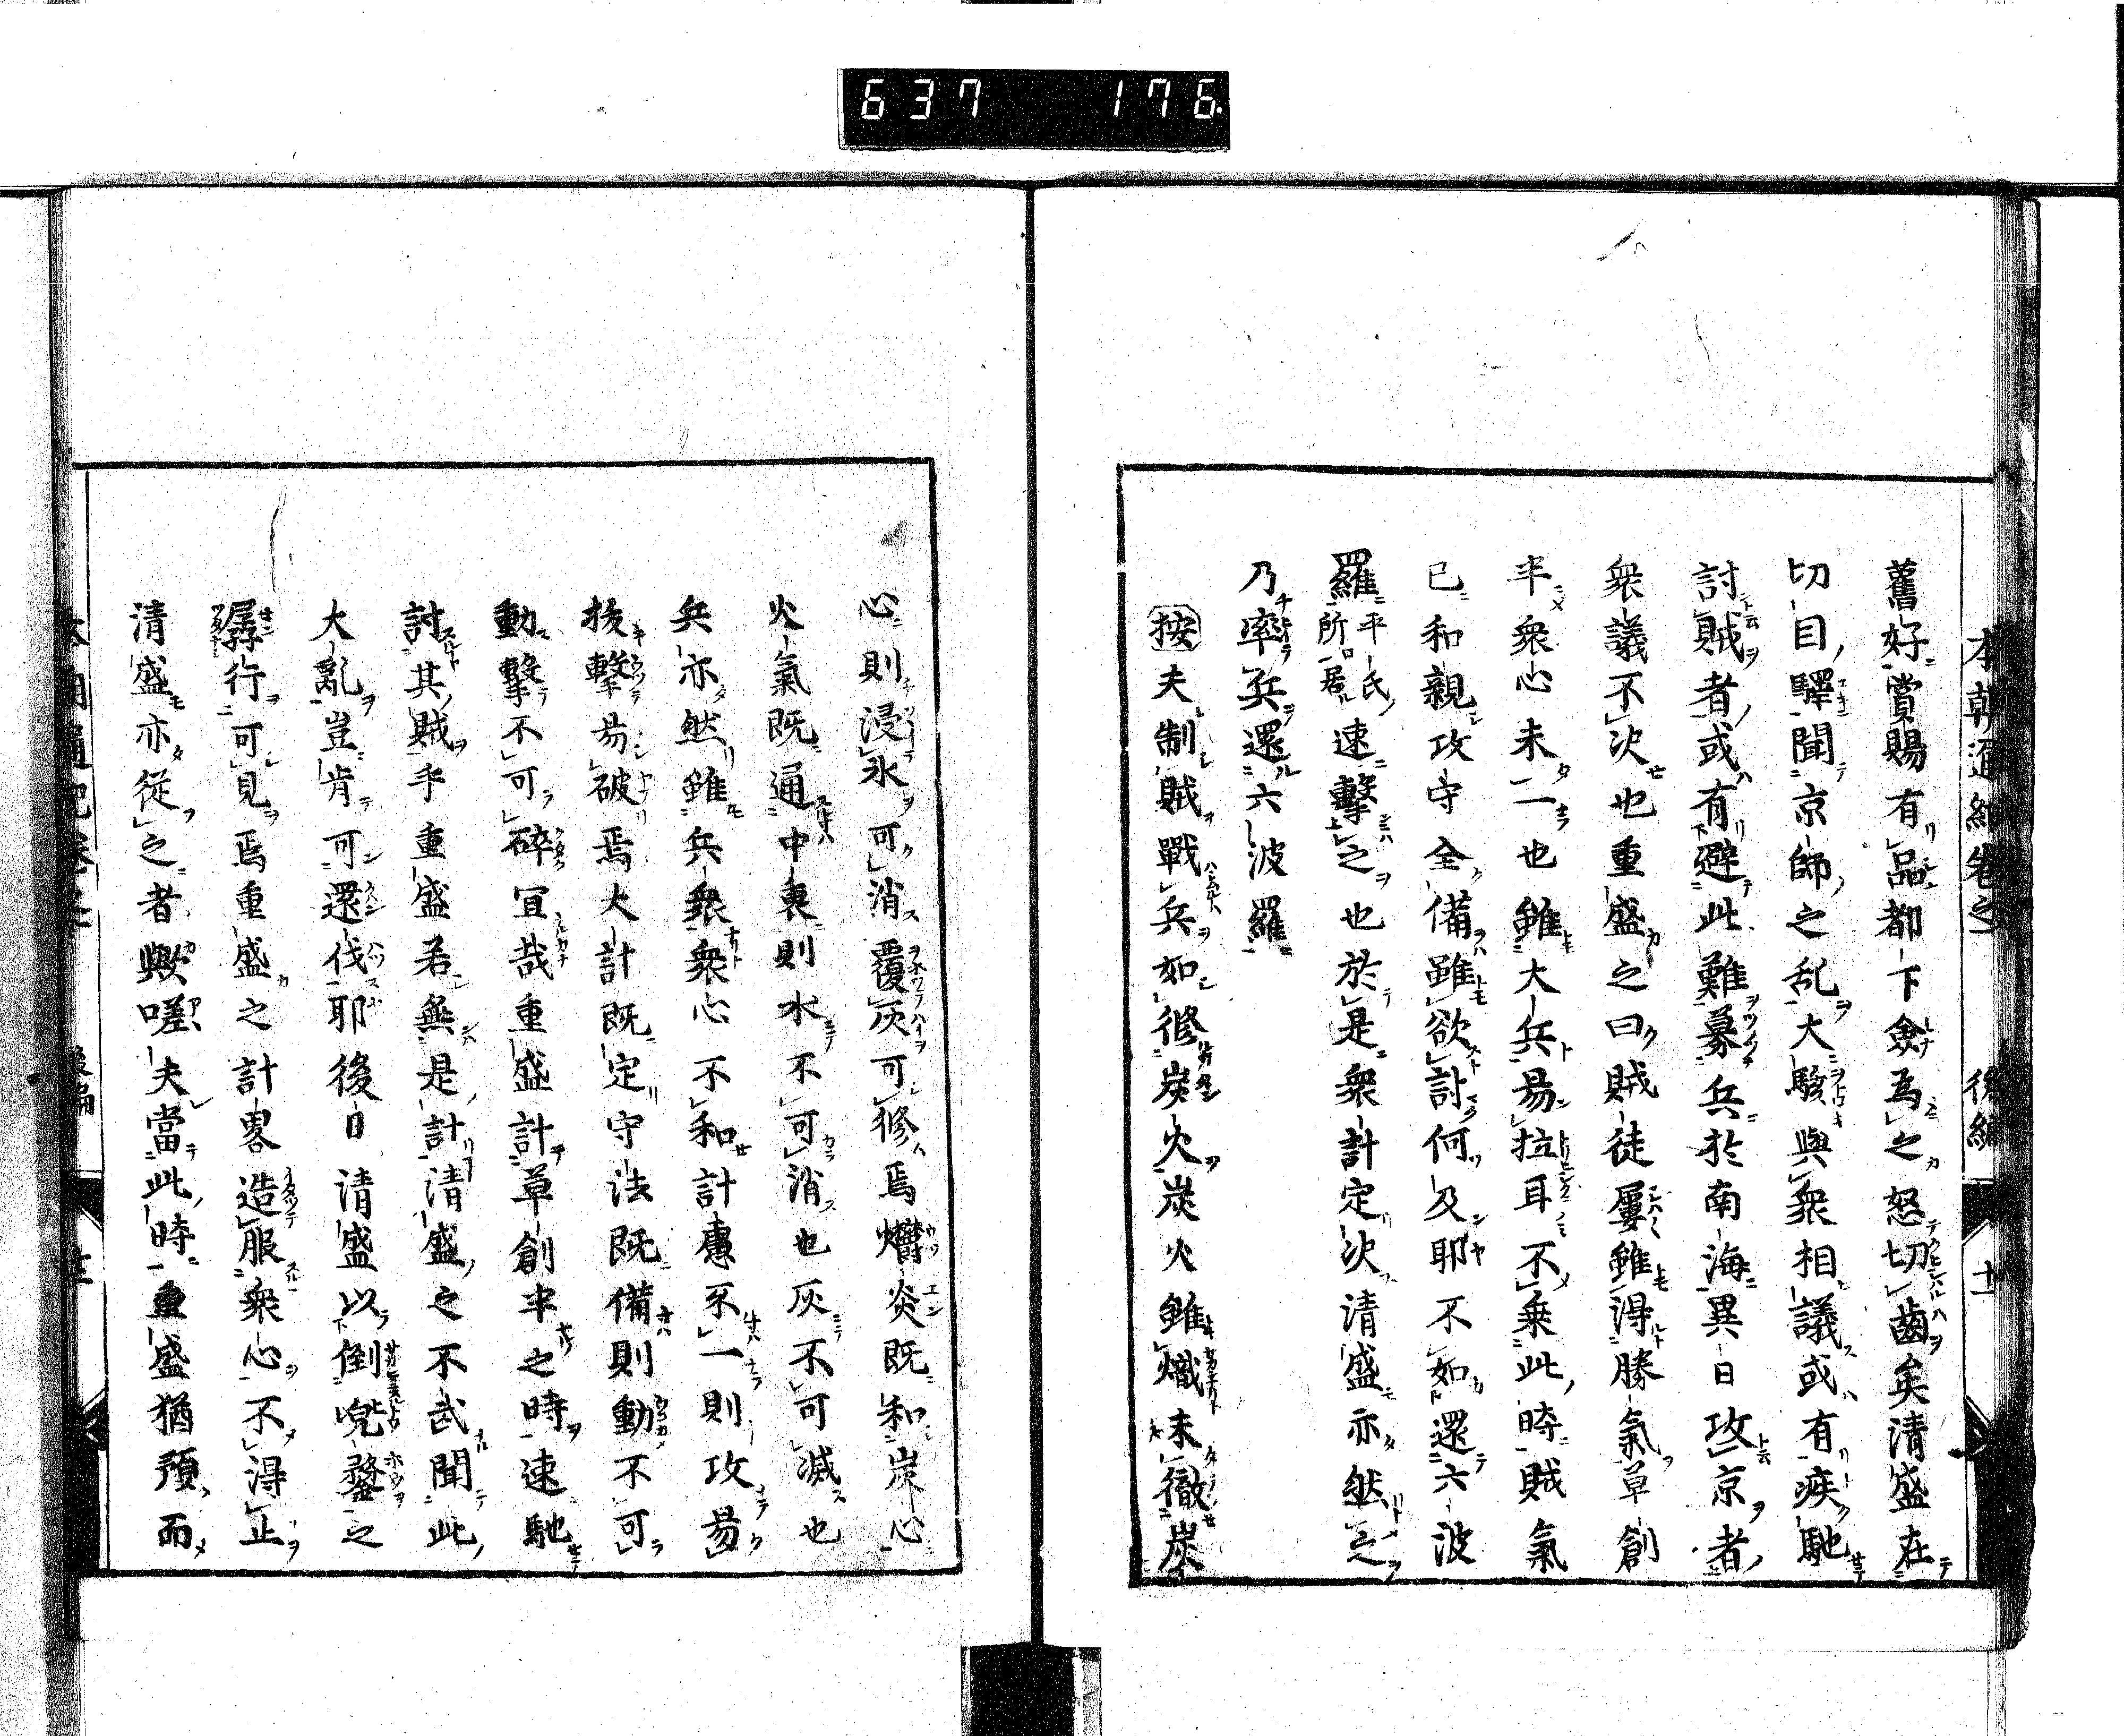 637 176
舊好賞賜有品都下僉為之怒切齒矣清盛在
切目驛聞京師之乱大駭與衆相議或有疾馳
討賊者或有避此難募兵於南海異日攻京者
衆議不決也重盛之曰賊徒屢雖得勝氣草創
半衆心未一也雖大兵易拉耳不乗此時賊氣
已和親攻守全備雖欲討何及耶不如還六波
羅平氏所居速擊之也於是衆計定決清盛亦然之
乃率兵還六波羅
按夫制賊戰兵如修炭火炭火雖熾未徹炭
心則浸水可消覆灰可修焉爩炎既和炭心
火氣既通中裏則水不可消也灰不可滅也
兵亦然雖兵衆衆心不和計慮不一則攻易
拔擊易破焉大計既定守法既備則動不可
動擊不可碎宜哉重盛計草創半之時速馳
討其賊乎重盛若無是計清盛之不武聞此
大亂豈肯可還伐耶後日清盛以倒兜鍪之
孱行可見焉重盛之計畧造服衆心不得止
清盛亦從之者歟嗟夫當此時重盛猶預而